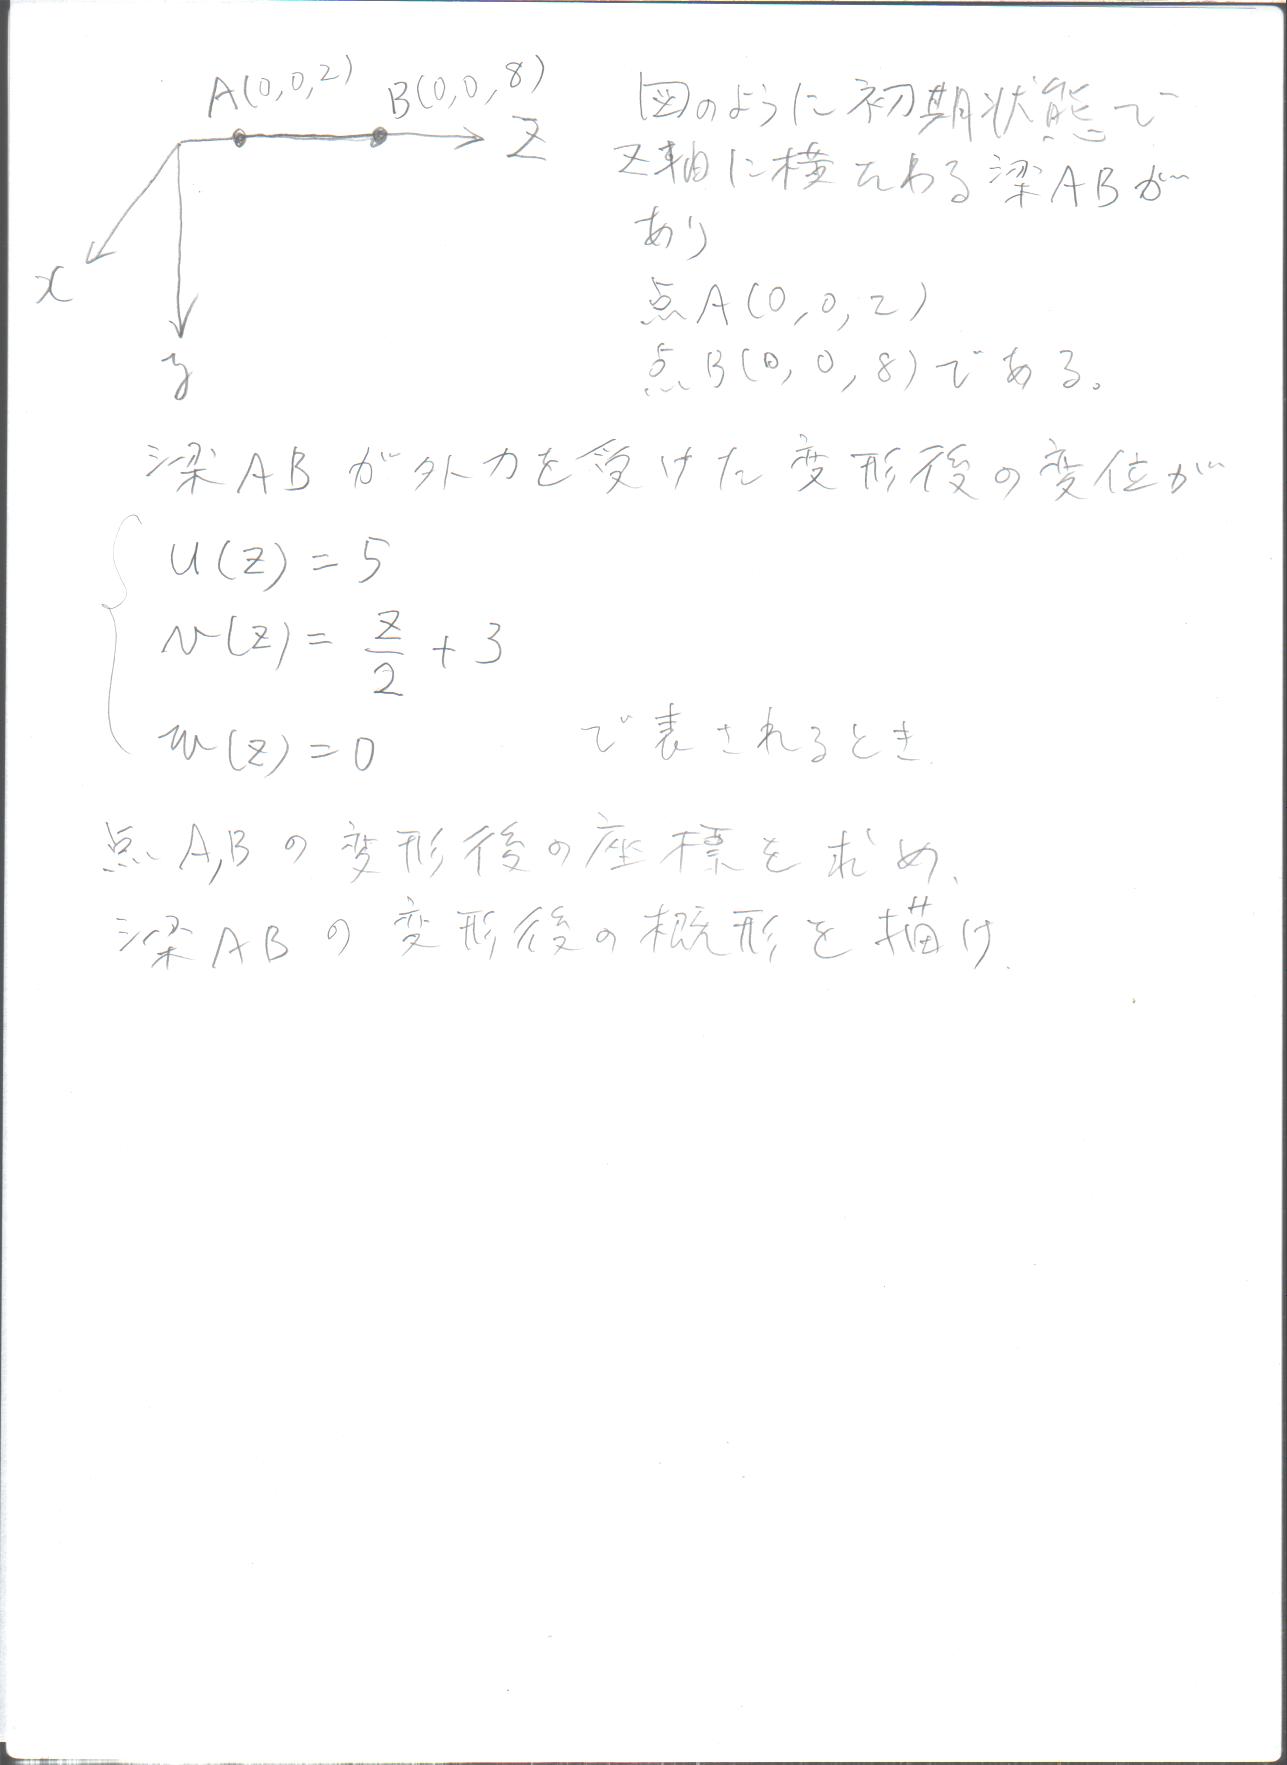 A(0,0,2)
B(0,0,8)
Z
x
y
図のように初期状態で
Z軸に横たわる梁ABが
あり
点A(0,0,2)
点B(0,0,8)である。
梁ABが外力を受けた変形後の変位が
u(z)=5
v(z)=z/2+3
w(z)=0 で表されるとき
点A,Bの変形後の座標を求め、
梁ABの変形後の概形を描け.